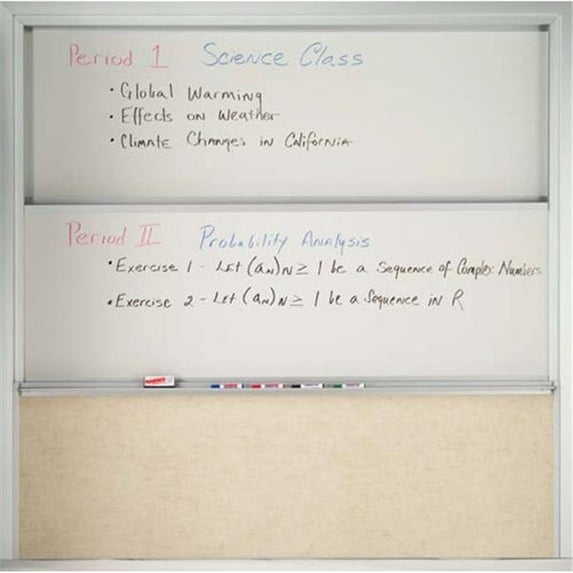 Period 1 Science Class
• Global Warming
• Effects on Weather
• Climate Changes in California
Period II Probability Analysis
• Exercise 1 - Let (aN)N ≥ 1 be a Sequence of Complex Numbers
• Exercise 2 - Let (aN)N ≥ 1 be a Sequence in R